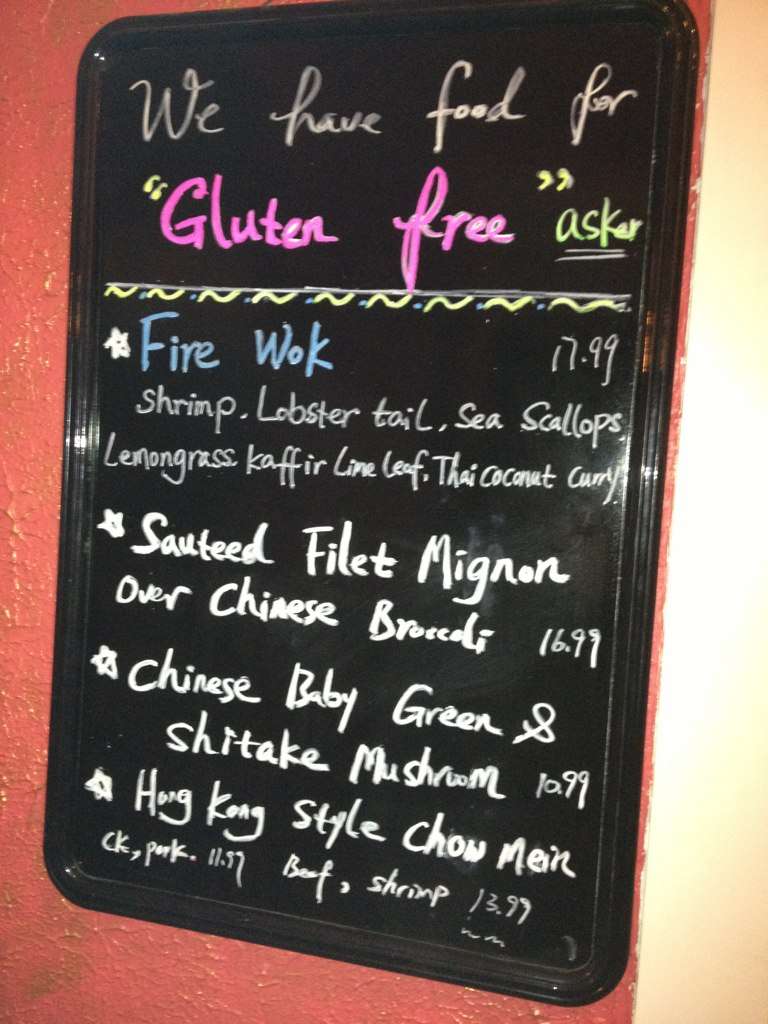 We have food for
"Gluten free" asker
Fire Wok 17.99
shrimp, Lobster tail, Sea Scallops
Lemongrass Kaffir Lime leaf, Thai coconut Curry
Sauteed Filet Mignon
over Chinese Broccoli 16.99
Chinese Baby Green &
Shitake Mushroom 10.99
Hong Kong Style Chow Mein
CK, pork. 11.97 Beef, shrimp 13.99